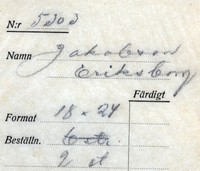 N:r 5203
Namn Jakobson
Eriksborg
Färdigt
Format 18 x 24
Beställn.
2 st